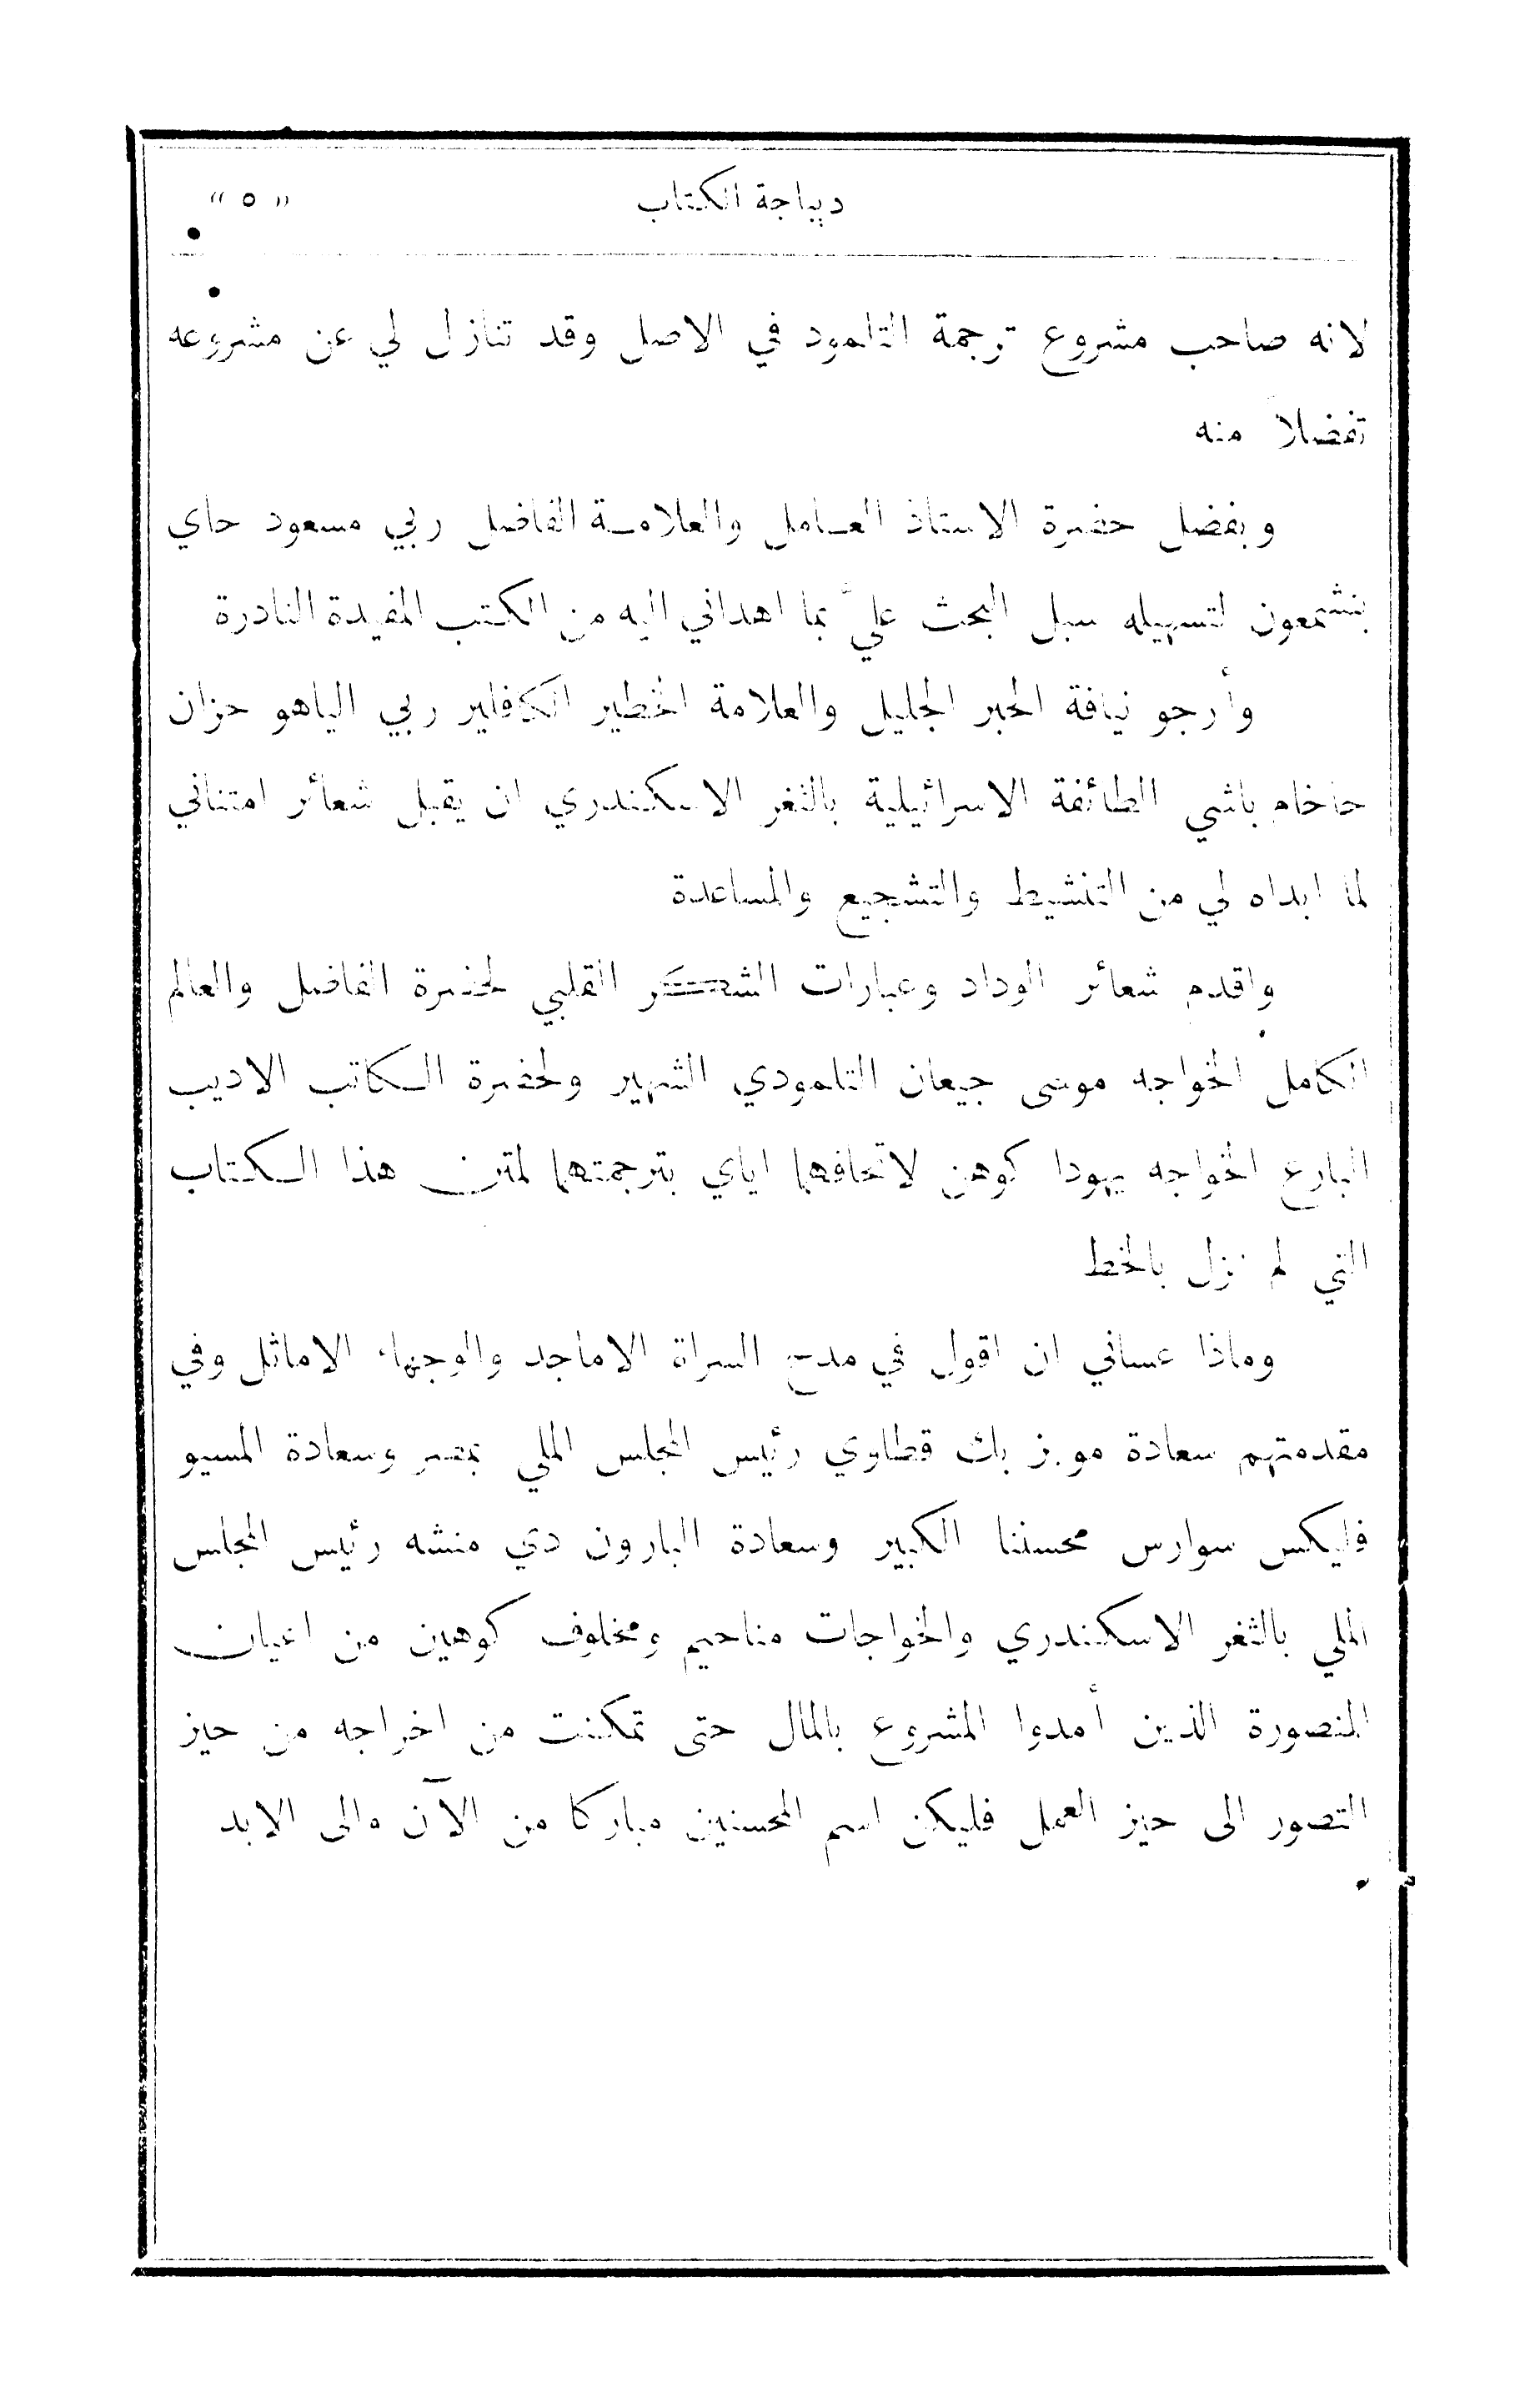 ديباجة الكتاب « ٥ »
لانه صاحب مشروع ترجمة التلمود في الاصل وقد تنازل لي عن مشروعه
تفضلاً منه
وبفضل حضرة الاستاذ العـامل والعلامـة الفاضل ربي مسعود حاي
بنشمعون لتسهيله سبل البحث عليَّ بما اهداني اليه من الكتب المفيدة النادرة
وأرجو نيافة الحبر الجليل والعلامة الخطير الكافلير ربي الياهو حزان
حاخام باشي الطائفة الاسرائيلية بالثغر الاسكندري ان يقبل شعائر امتناني
لما ابداه لي من التنشيط والتشجيع والمساعدة
واقدم شعائر الوداد وعبارات الشكر القلبي لحضرة الفاضل والعالم
الكامل الخواجه موسى جيعان التلمودي الشهير ولحضرة الكاتب الاديب
البارع الخواجه يهودا كوهن لاتحافهما اياي بترجمتهما لمتن هذا الكتاب
التي لم نزل بالخط
وماذا عساني ان اقول في مدح السراة الاماجد والوجهاء الاماثل وفي
مقدمتهم سعادة مويز بك قطاوي رئيس المجلس الملي بمصر وسعادة المسيو
فليكس سوارس محسننا الكبير وسعادة البارون دي منشه رئيس المجلس
الملي بالثغر الاسكندري والخواجات مناحيم ومخلوف كوهين من اعيان
المنصورة الذين أمدوا المشروع بالمال حتى تمكنت من اخراجه من حيز
التصور الى حيز العمل فليكن اسم المحسنين مباركا من الآن والى الابد